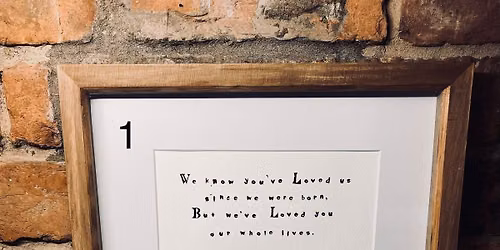 1
We know you've Loved us
since we were born,
But we've Loved you
our whole lives.